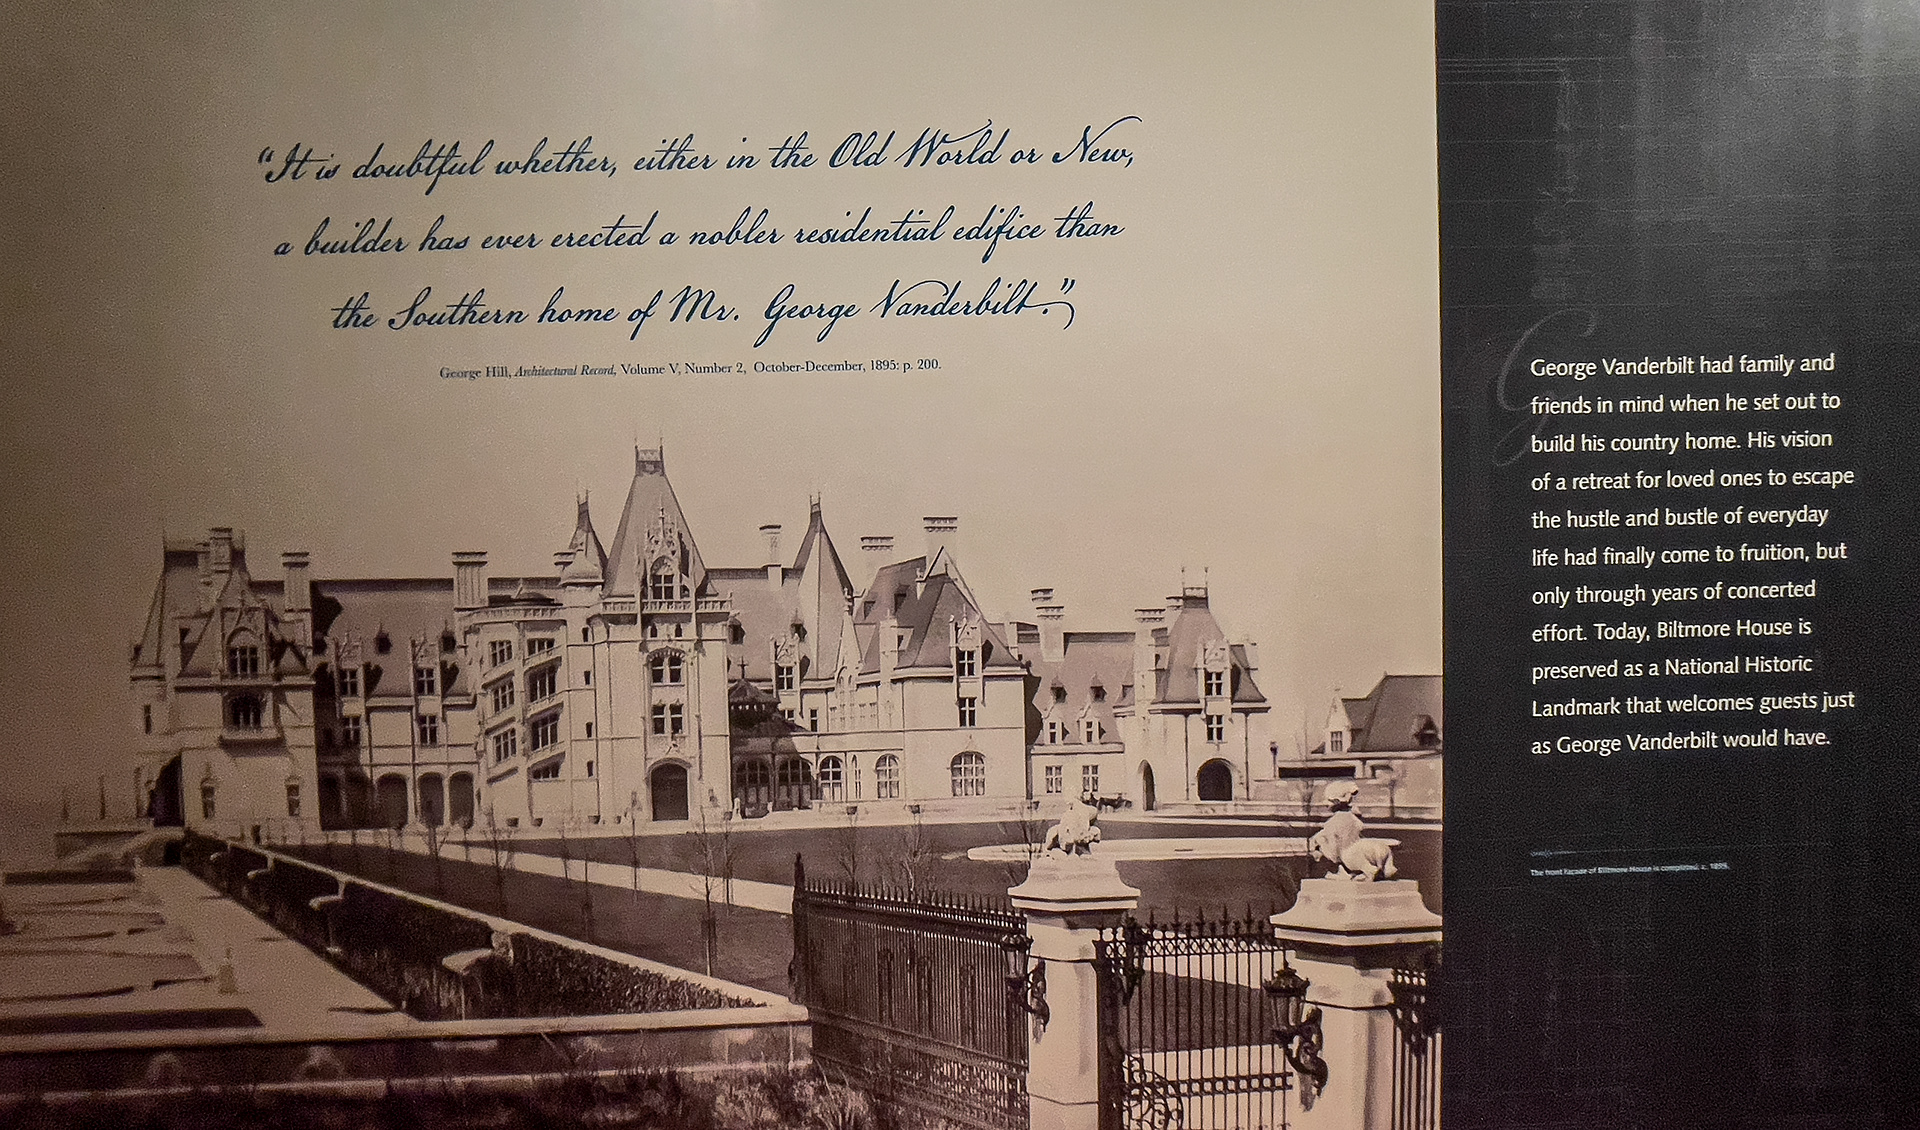 “It is doubtful whether, either in the Old World or New,
a builder has ever erected a nobler residential edifice than
the Southern home of Mr. George Vanderbilt.”
George Hill, Architectural Record, Volume V, Number 2, October-December, 1895: p. 200.
George Vanderbilt had family and
friends in mind when he set out to
build his country home. His vision
of a retreat for loved ones to escape
the hustle and bustle of everyday
life had finally come to fruition, but
only through years of concerted
effort. Today, Biltmore House is
preserved as a National Historic
Landmark that welcomes guests just
as George Vanderbilt would have.
The front facade of Biltmore House is completed, c. 1895.